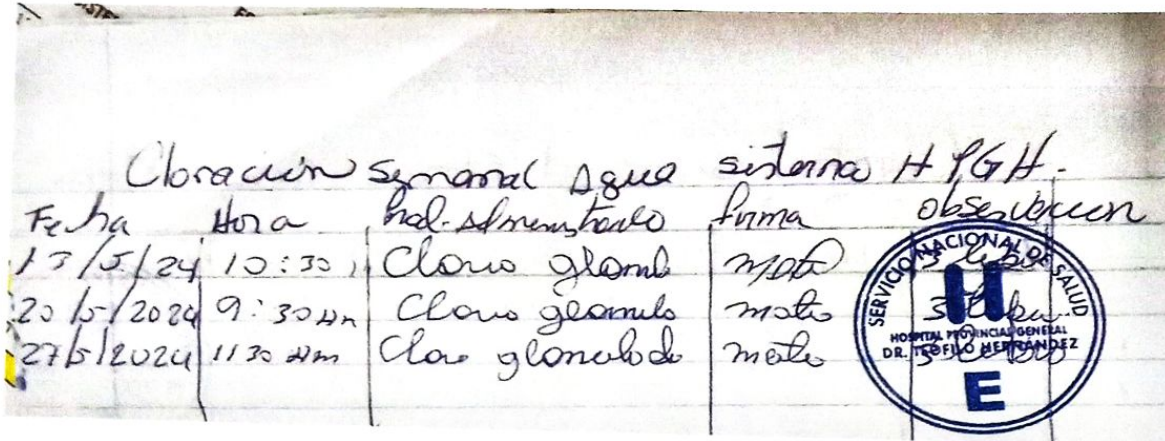 Cloración Semanal Agua sisterna HPGH.
Fecha Hora Prod. Administrado firma observacion
13/5/24 10:30 Cloro glanul mota 3 libr
20/5/2024 9:30 am Cloro glanulo mota 3
27/5/2024 11 30 am Cloro glanulado mota 3
SERVICIO NACIONAL DE SALUD
H
HOSPITAL PROVINCIAL GENERAL
DR. TEOFILO HERNÁNDEZ
E